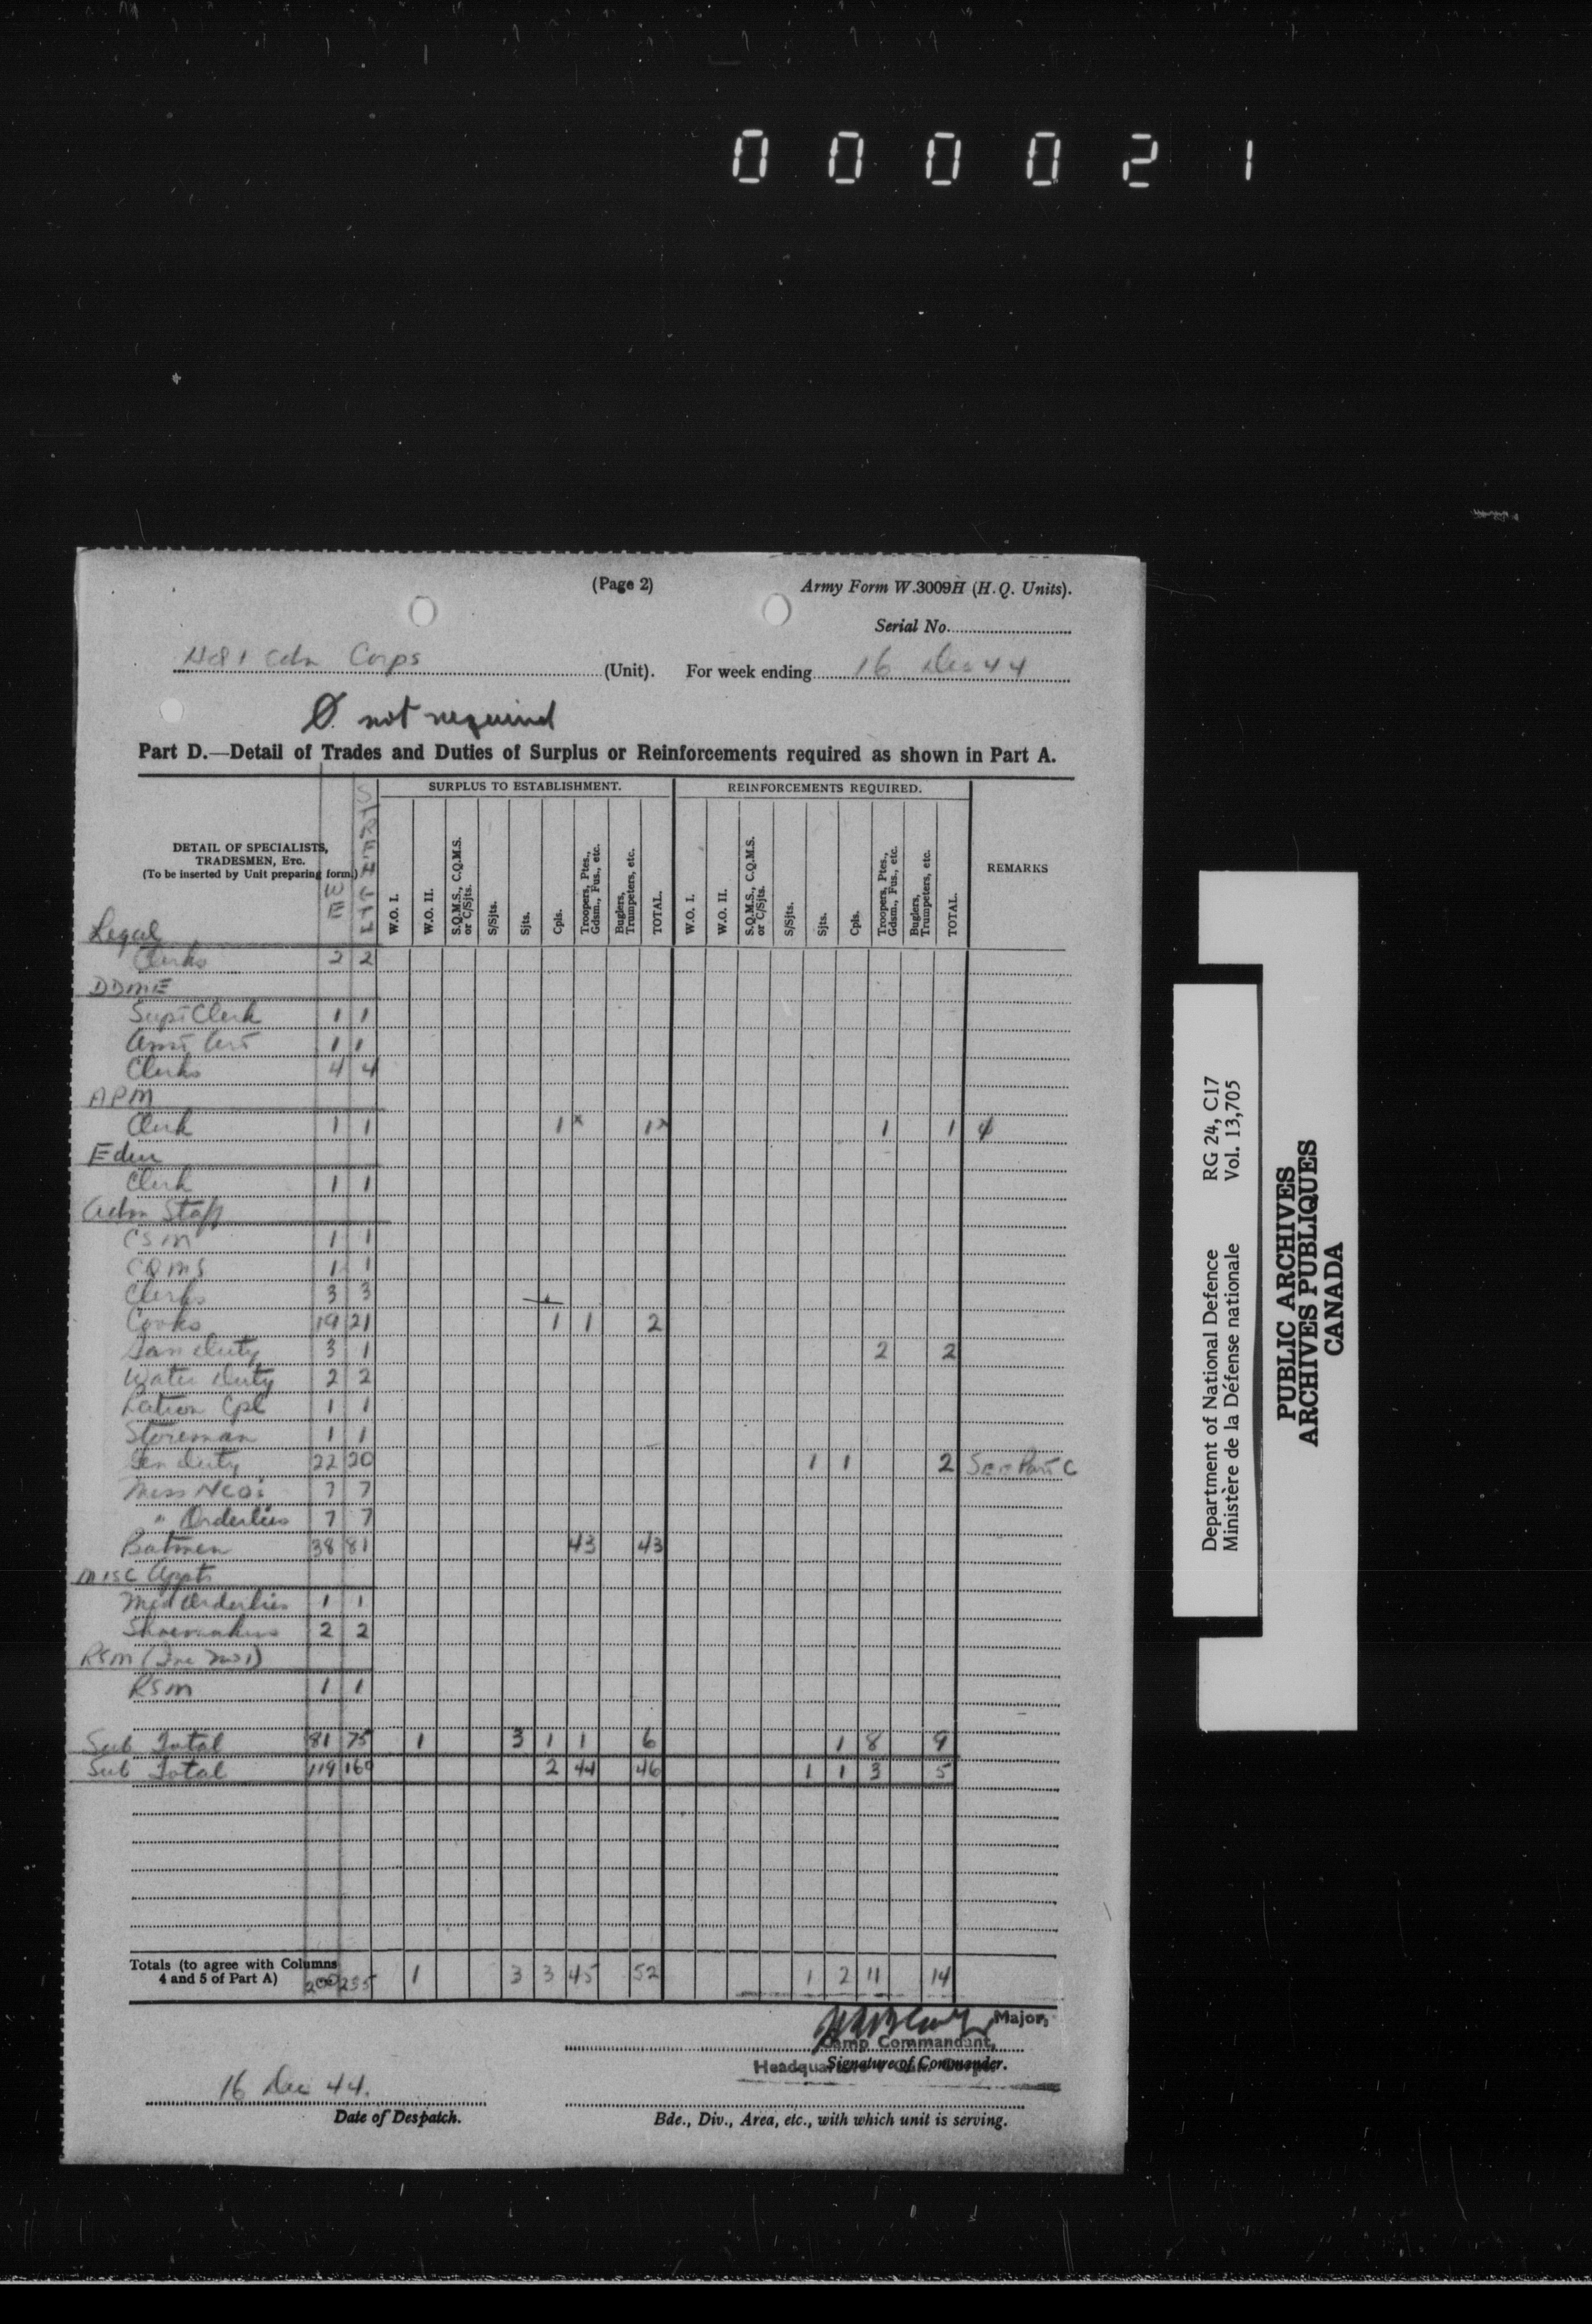 0 0 0 0 2 1
(Page 2) Army Form W.3009H (H.Q. Units).
Serial No.
HQ 1 Cdn Corps (Unit). For week ending 16 Dec 44
Ø not required
Part D.—Detail of Trades and Duties of Surplus or Reinforcements required as shown in Part A.
DETAIL OF SPECIALISTS, TRADESMEN, ETC. (To be inserted by Unit preparing form.) WE STRENGTH SURPLUS TO ESTABLISHMENT. REINFORCEMENTS REQUIRED. REMARKS
W.O. I. W.O. II. S.Q.M.S., C.Q.M.S. or C/Sjts. S/Sjts. Sjts. Cpls. Troopers, Ptes., Gdsm., Fus., etc. Buglers, Trumpeters, etc. TOTAL. W.O. I. W.O. II. S.Q.M.S., C.Q.M.S. or C/Sjts. S/Sjts. Sjts. Cpls. Troopers, Ptes., Gdsm., Fus., etc. Buglers, Trumpeters, etc. TOTAL.
Legal
Clerks 2 2
DDME
Supt Clerk 1 1
1 1
Clerks 4 4
APM
Clerk 1 1 1x 1x 1 1 ø
Edn
Clerk 1 1
Adm Staff
CSM 1 1
CQMS 1 1
Clerks 3 3
Cooks 19 21 1 1 2
San Duty 3 1 2 2
Water Duty 2 2
Ration Cpl 1 1
Storeman 1 1
Gen Duty 22 20 1 1 2 See Part C
Mess NCOs 7 7
" Orderlies 7 7
Batmen 38 81 43 43
Misc Appts
Med Orderlies 1 1
Shoemakers 2 2
RSM
RSM 1 1
Sub Total 81 75 1 3 1 1 6 1 8 9
Sub Total 119 160 2 44 46 1 1 3 5
Totals (to agree with Columns 4 and 5 of Part A) 200 235 1 3 3 45 52 1 2 11 14
Major,
Camp Commandant,
Signature of Commander.
16 Dec 44.
Date of Despatch.
Bde., Div., Area, etc., with which unit is serving.
Department of National Defence RG 24, C17
Ministère de la Défense nationale Vol. 13,705
PUBLIC ARCHIVES
ARCHIVES PUBLIQUES
CANADA